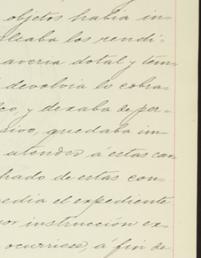 objetos habia in-
licaba los rendi-
averia dotal y tom
devolvia lo cobra-
co, y dexaba de per-
sivo, quedaba im
atender á estas can
hado de estas con-
pedia el expediente
por instruccion ex-
ocurriese, á fin de